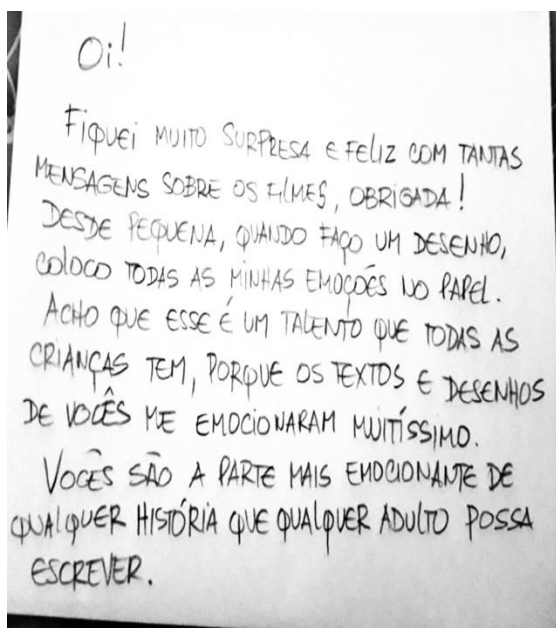 Oi!
Fiquei MUITO SURPRESA E FELIZ COM TANTAS
MENSAGENS SOBRE OS FILMES, OBRIGADA!
DESDE PEQUENA, QUANDO FAÇO UM DESENHO,
COLOCO TODAS AS MINHAS EMOÇÕES NO PAPEL.
ACHO QUE ESSE É UM TALENTO QUE TODAS AS
CRIANÇAS TEM, PORQUE OS TEXTOS E DESENHOS
DE VOCÊS ME EMOCIONARAM MUITÍSSIMO.
VOCÊS SÃO A PARTE MAIS EMOCIONANTE DE
QUALQUER HISTÓRIA QUE QUALQUER ADULTO POSSA
ESCREVER.